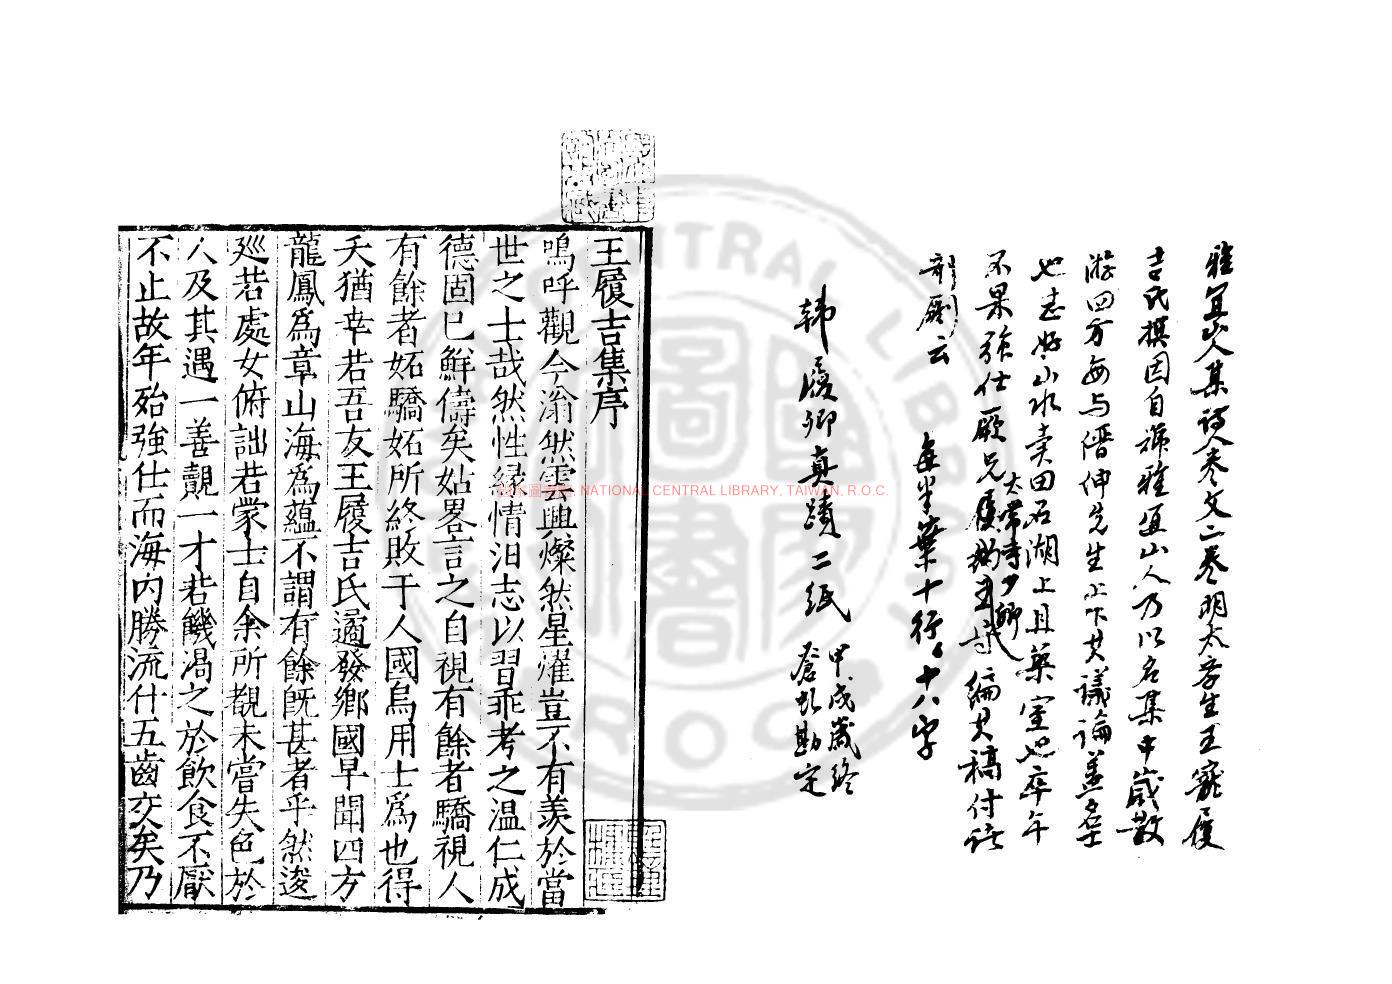 雅宜山人集詩八卷文二卷明太學生王寵履
吉氏撰因自號雅宜山人乃以名集中歲數
游四方每与縉伸先生上下其議論盖名士
也志好山水卖田石湖上且築室也卒年
不果強仕厥兄履約 編其稿付諸
大常寺少卿
剞劂云
每半葉十行行十八字
韩履卿真蹟二紙
甲戌歲終
蒼虬勘定
王履吉集序
嗚呼觀今滃然雲興燦然星燿豈不有羨於當
世之士哉然性緣情汨志以習乖考之温仁成
德固已鮮儔矣姑畧言之自視有餘者驕視人
有餘者妬驕妬所終敗于人國烏用士為也得
夭猶幸若吾友王履吉氏遹發鄉國早聞四方
龍鳳為章山海為蘊不謂有餘旣甚者乎然逡
廵若處女俯詘若蒙士自余所覩未嘗失色於
人及其遇一善覩一才若饑渴之於飲食不厭
不止故年殆強仕而海內勝流什五齒交矣乃
國家圖書館 NATIONAL CENTRAL LIBRARY, TAIWAN, R.O.C.
CENTRAL LIBRARY
R.O.C.
圖書